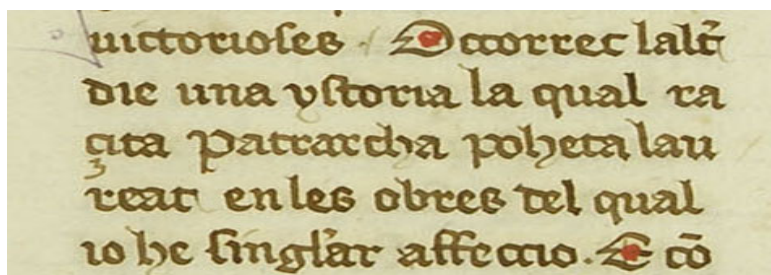 uictorioses . Occorrec laltr̃
die una ystoria la qual ra
cita Patrarcha poheta lau
reat en les obres del qual
io he singl̃ar affeccio. E cõ